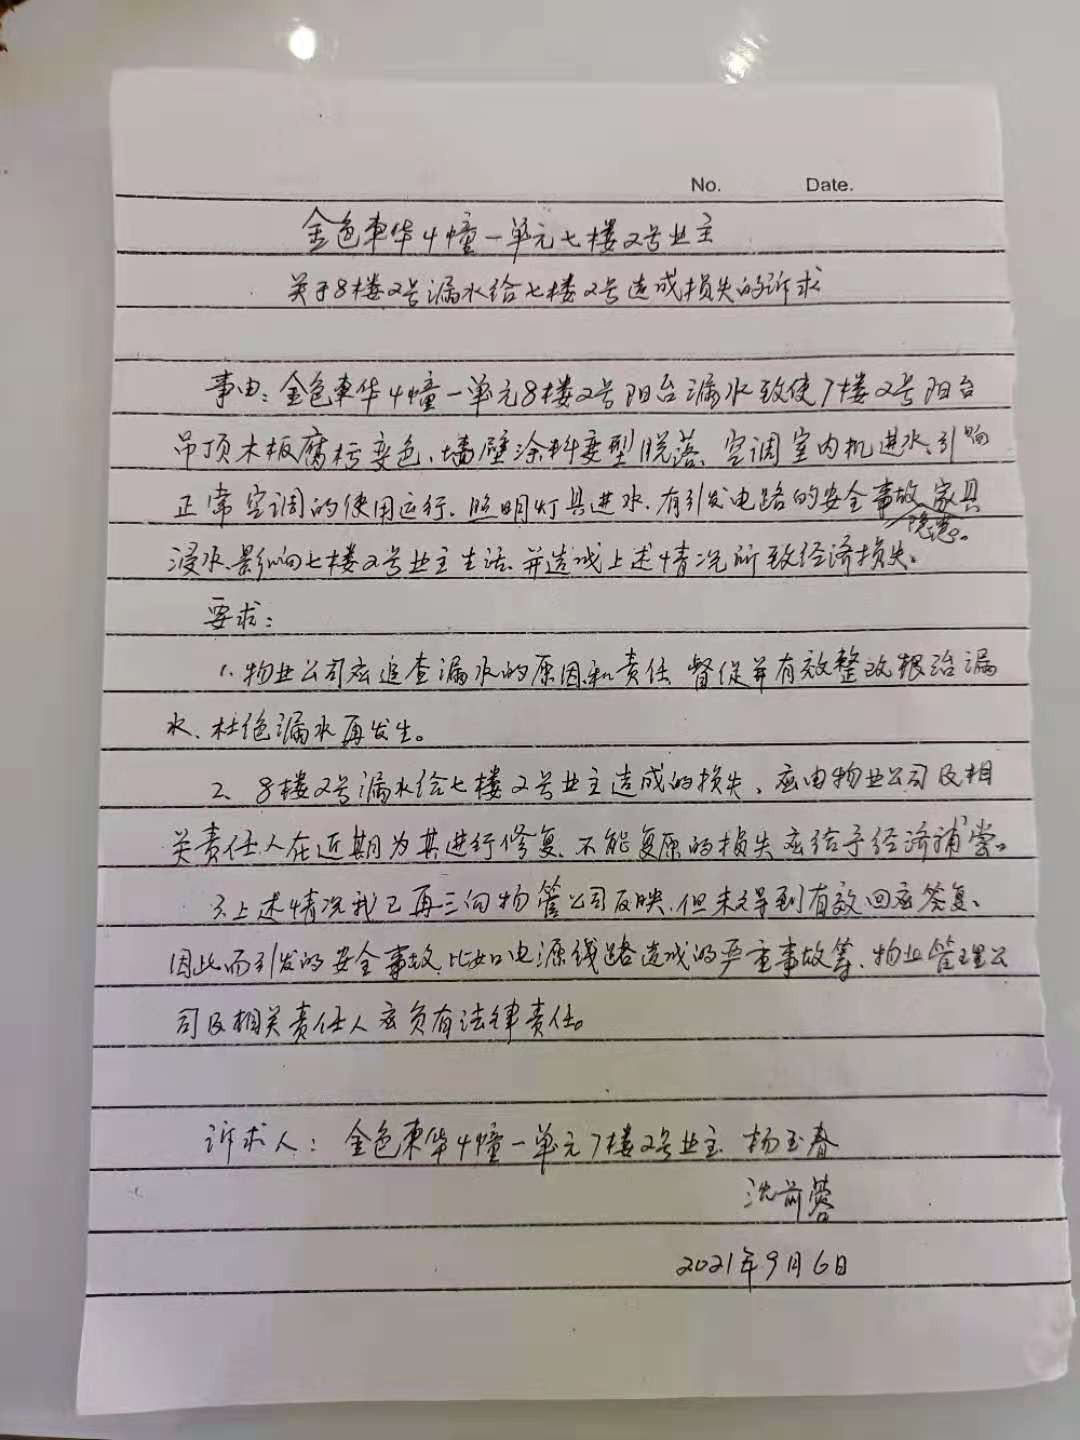 No. Date.
金色東华4幢一单元七楼2号业主
关于8楼2号漏水给七楼2号造成损失的诉求
事由：金色東华4幢一单元8楼2号阳台漏水致使7楼2号阳台
吊顶木板腐朽变色、墙壁涂料变型脱落、空调室内机进水、引响
正常空调的使用运行、照明灯具进水、有引发电路的安全事故隐患。家具
浸水、影响七楼2号业主生活、并造成上述情况所致经济损失。
要求：
1、物业公司应追查漏水的原因和责任 督促并有效整改根治漏
水、杜绝漏水再发生。
2、8楼2号漏水给七楼2号业主造成的损失、应由物业公司及相
关责任人在近期为其进行修复、不能复原的损失应给予经济补尝。
3、上述情况我已再三向物管公司反映、但未得到有效回应答复、
因此而引发的安全事故、比如电源线路造成的严重事故等、物业管理公
司及相关责任人应负有法律责任。
诉求人：金色東华4幢一单元7楼2号业主 杨玉春
沈前蓉
2021年9月6日